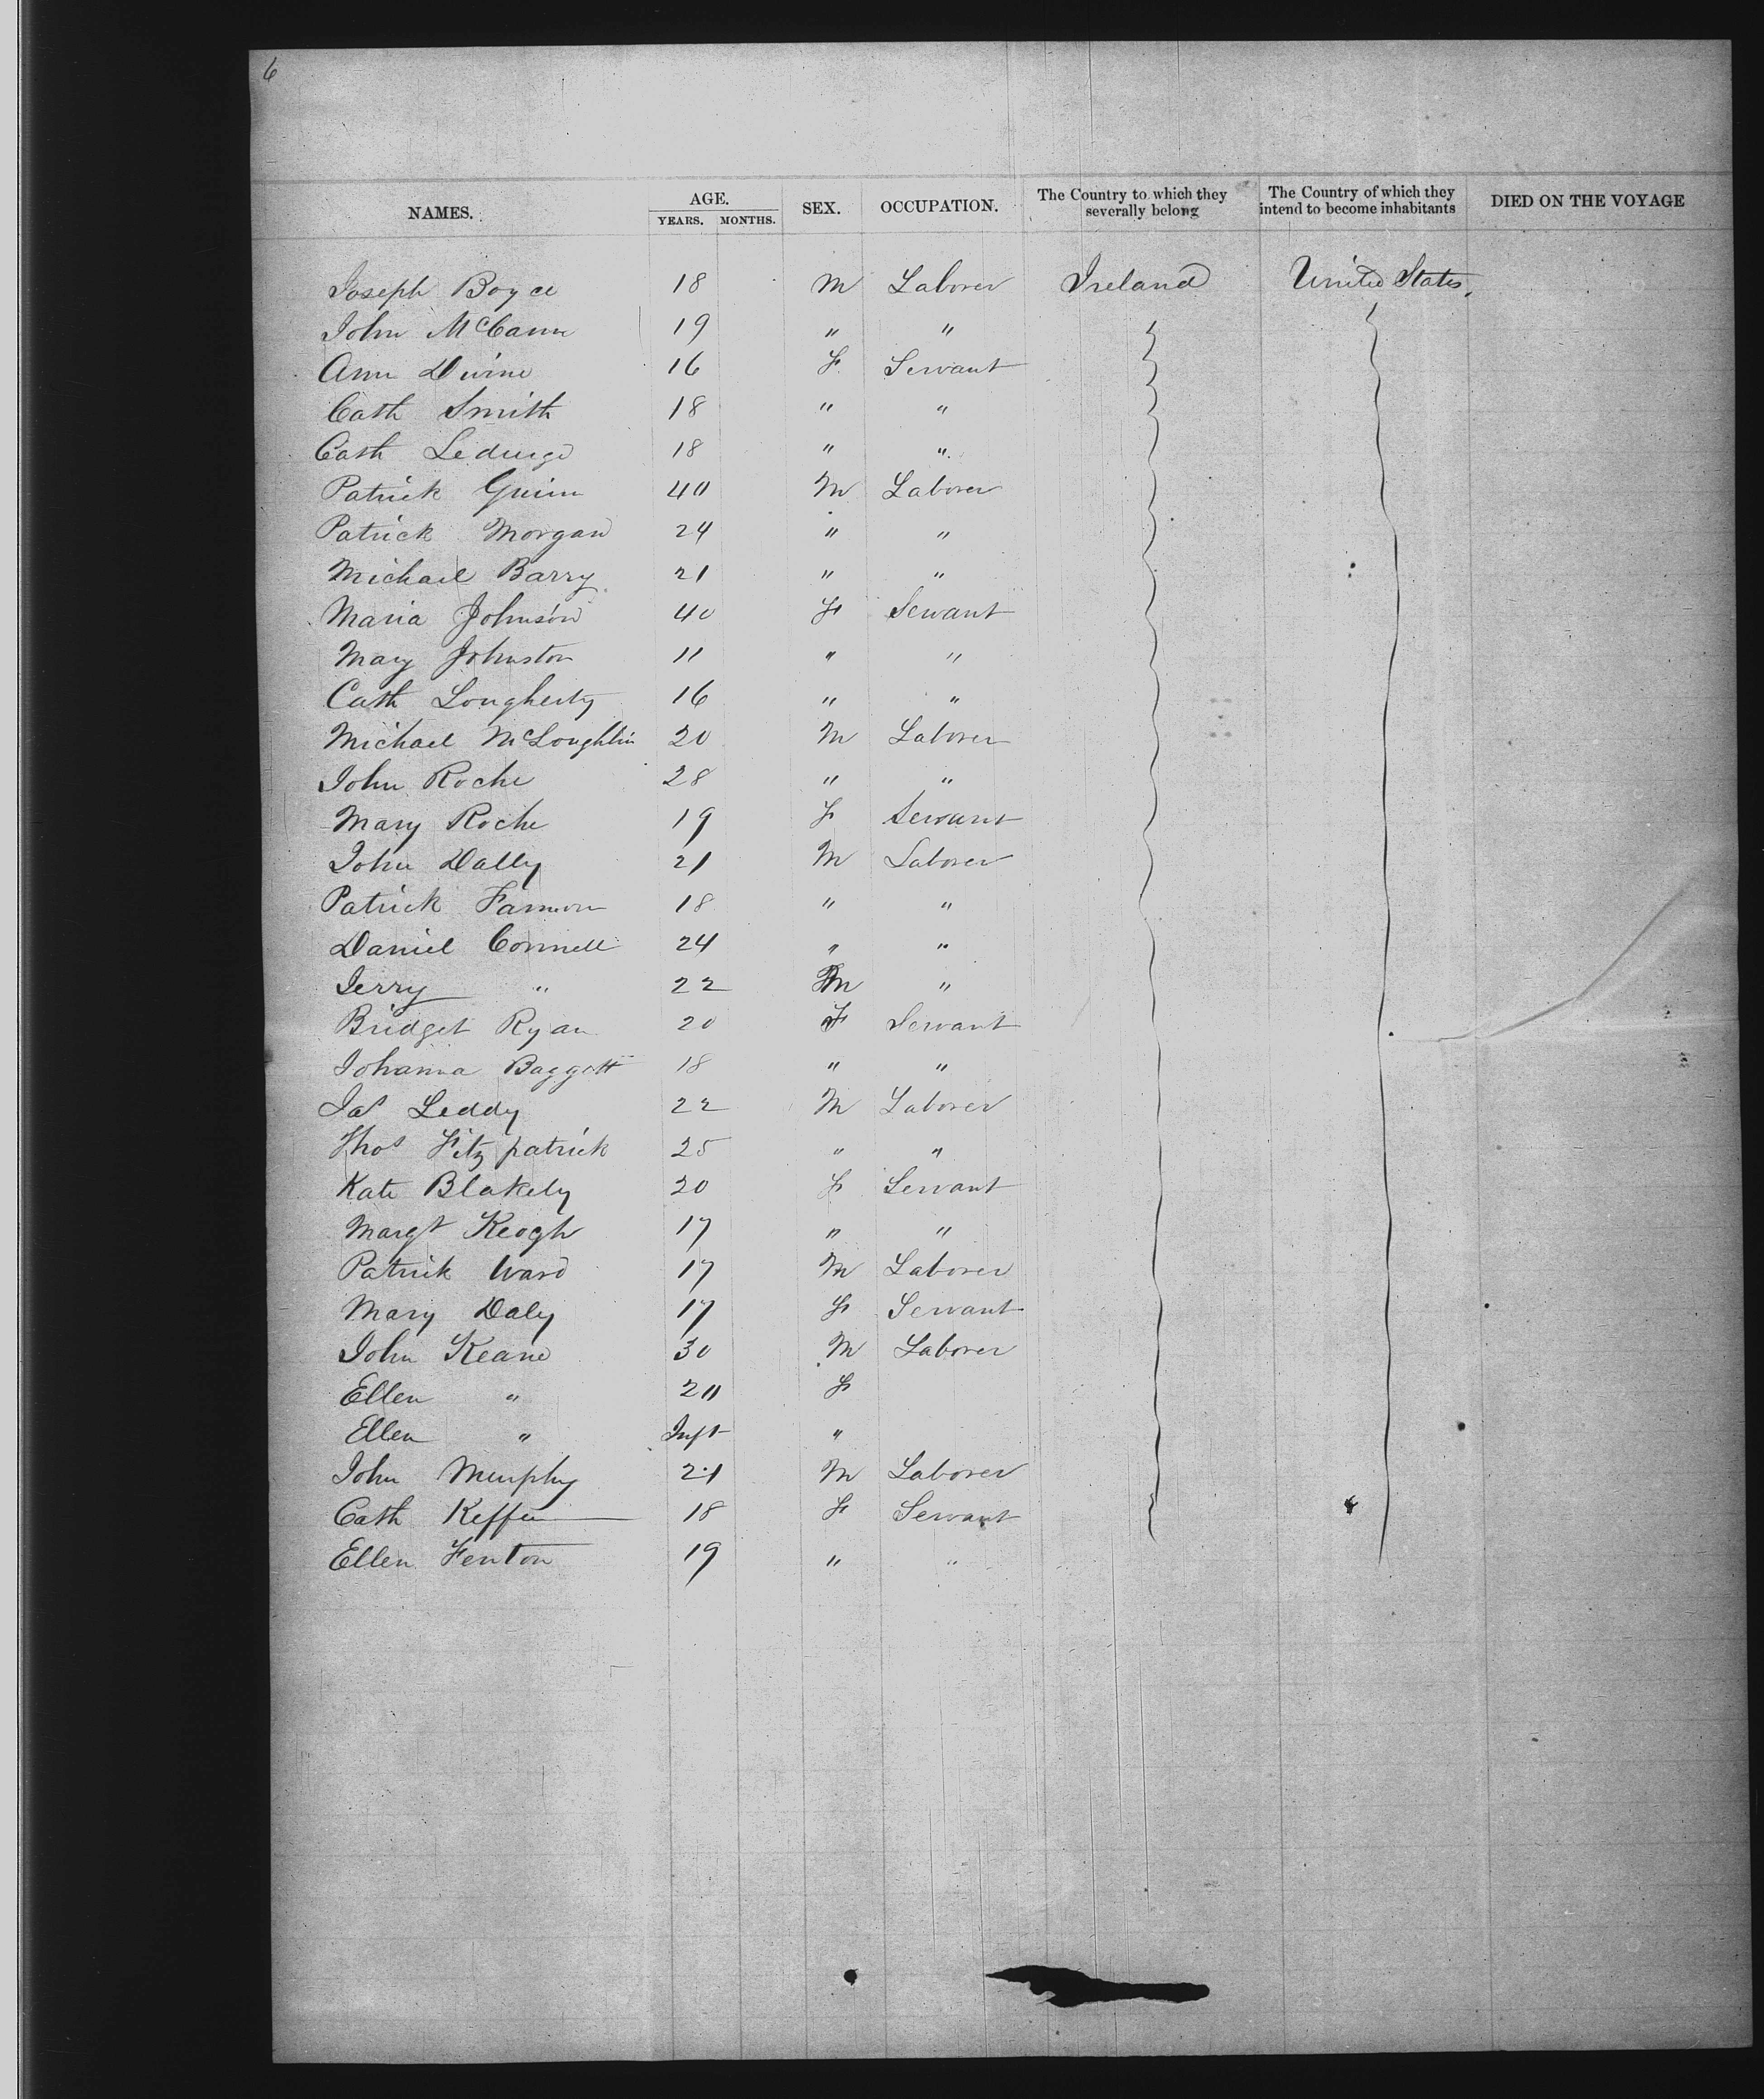 6
NAMES. AGE. YEARS. MONTHS. SEX. OCCUPATION. The Country to which they severally belong The Country of which they intend to become inhabitants DIED ON THE VOYAGE
Joseph Boyce 18 M Laborer Ireland United States
John McCann 19 " "
Ann Divine 16 F Servant
Cath Smith 18 " "
Cath 18 " "
Patrick Guinn 40 M Laborer
Patrick Morgan 24 " "
Michael Barry 21 " "
Maria Johnson 40 F Servant
Mary Johnston 11 " "
Cath Lougherty 16 " "
Michael McLoughlin 20 M Laborer
John Roche 28 " "
Mary Roche 19 F Servant
John Dally 21 M Laborer
Patrick 18 " "
Daniel Connell 24 " "
Jerry " 22 M "
Bridget Ryan 20 F Servant
Johanna Baggott 18 " "
Jas Leddy 22 M Laborer
Thos Fitzpatrick 25 " "
Kate Blakely 20 F Servant
Margt Keogh 17 " "
Patrick Ward 17 M Laborer
Mary Daly 17 F Servant
John Keane 30 M Laborer
Ellen " 20 F
Ellen " Inft "
John Murphy 21 M Laborer
Cath 18 F Servant
Ellen Fenton 19 " "